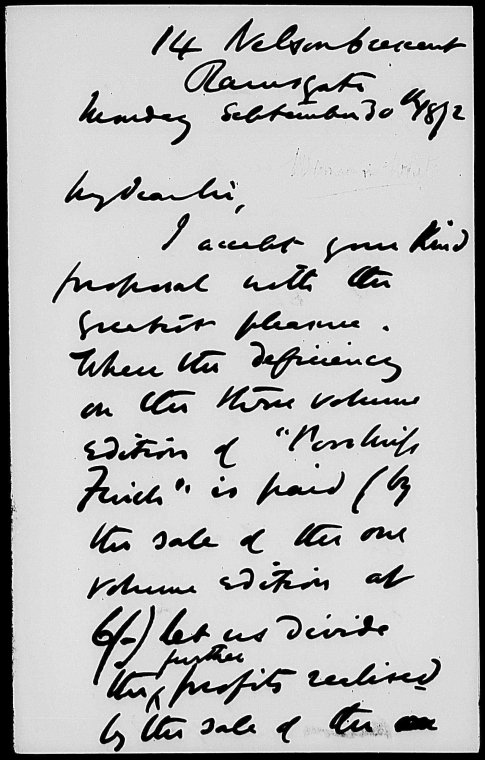 14 Nelson Crescent
Ramsgate
Monday September 30th 1872
My dear Sir,
I accept your kind
proposal with the
greatest pleasure.
When the deficiency
on the three volume
edition of "Worship's
Finch" is paid (by
the sale of the one
volume edition at
6/-) let us divide
the further profits realised
by the sale of the